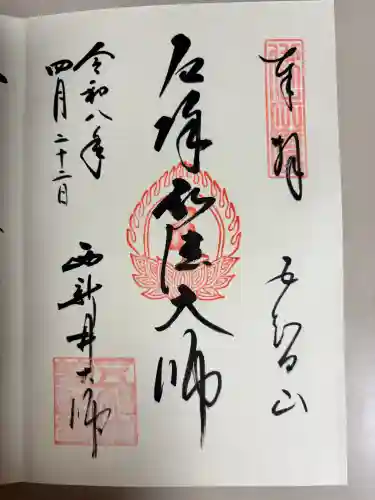 奉拝
五智山
厄除弘法大師
令和八年
四月二十二日
西新井大師